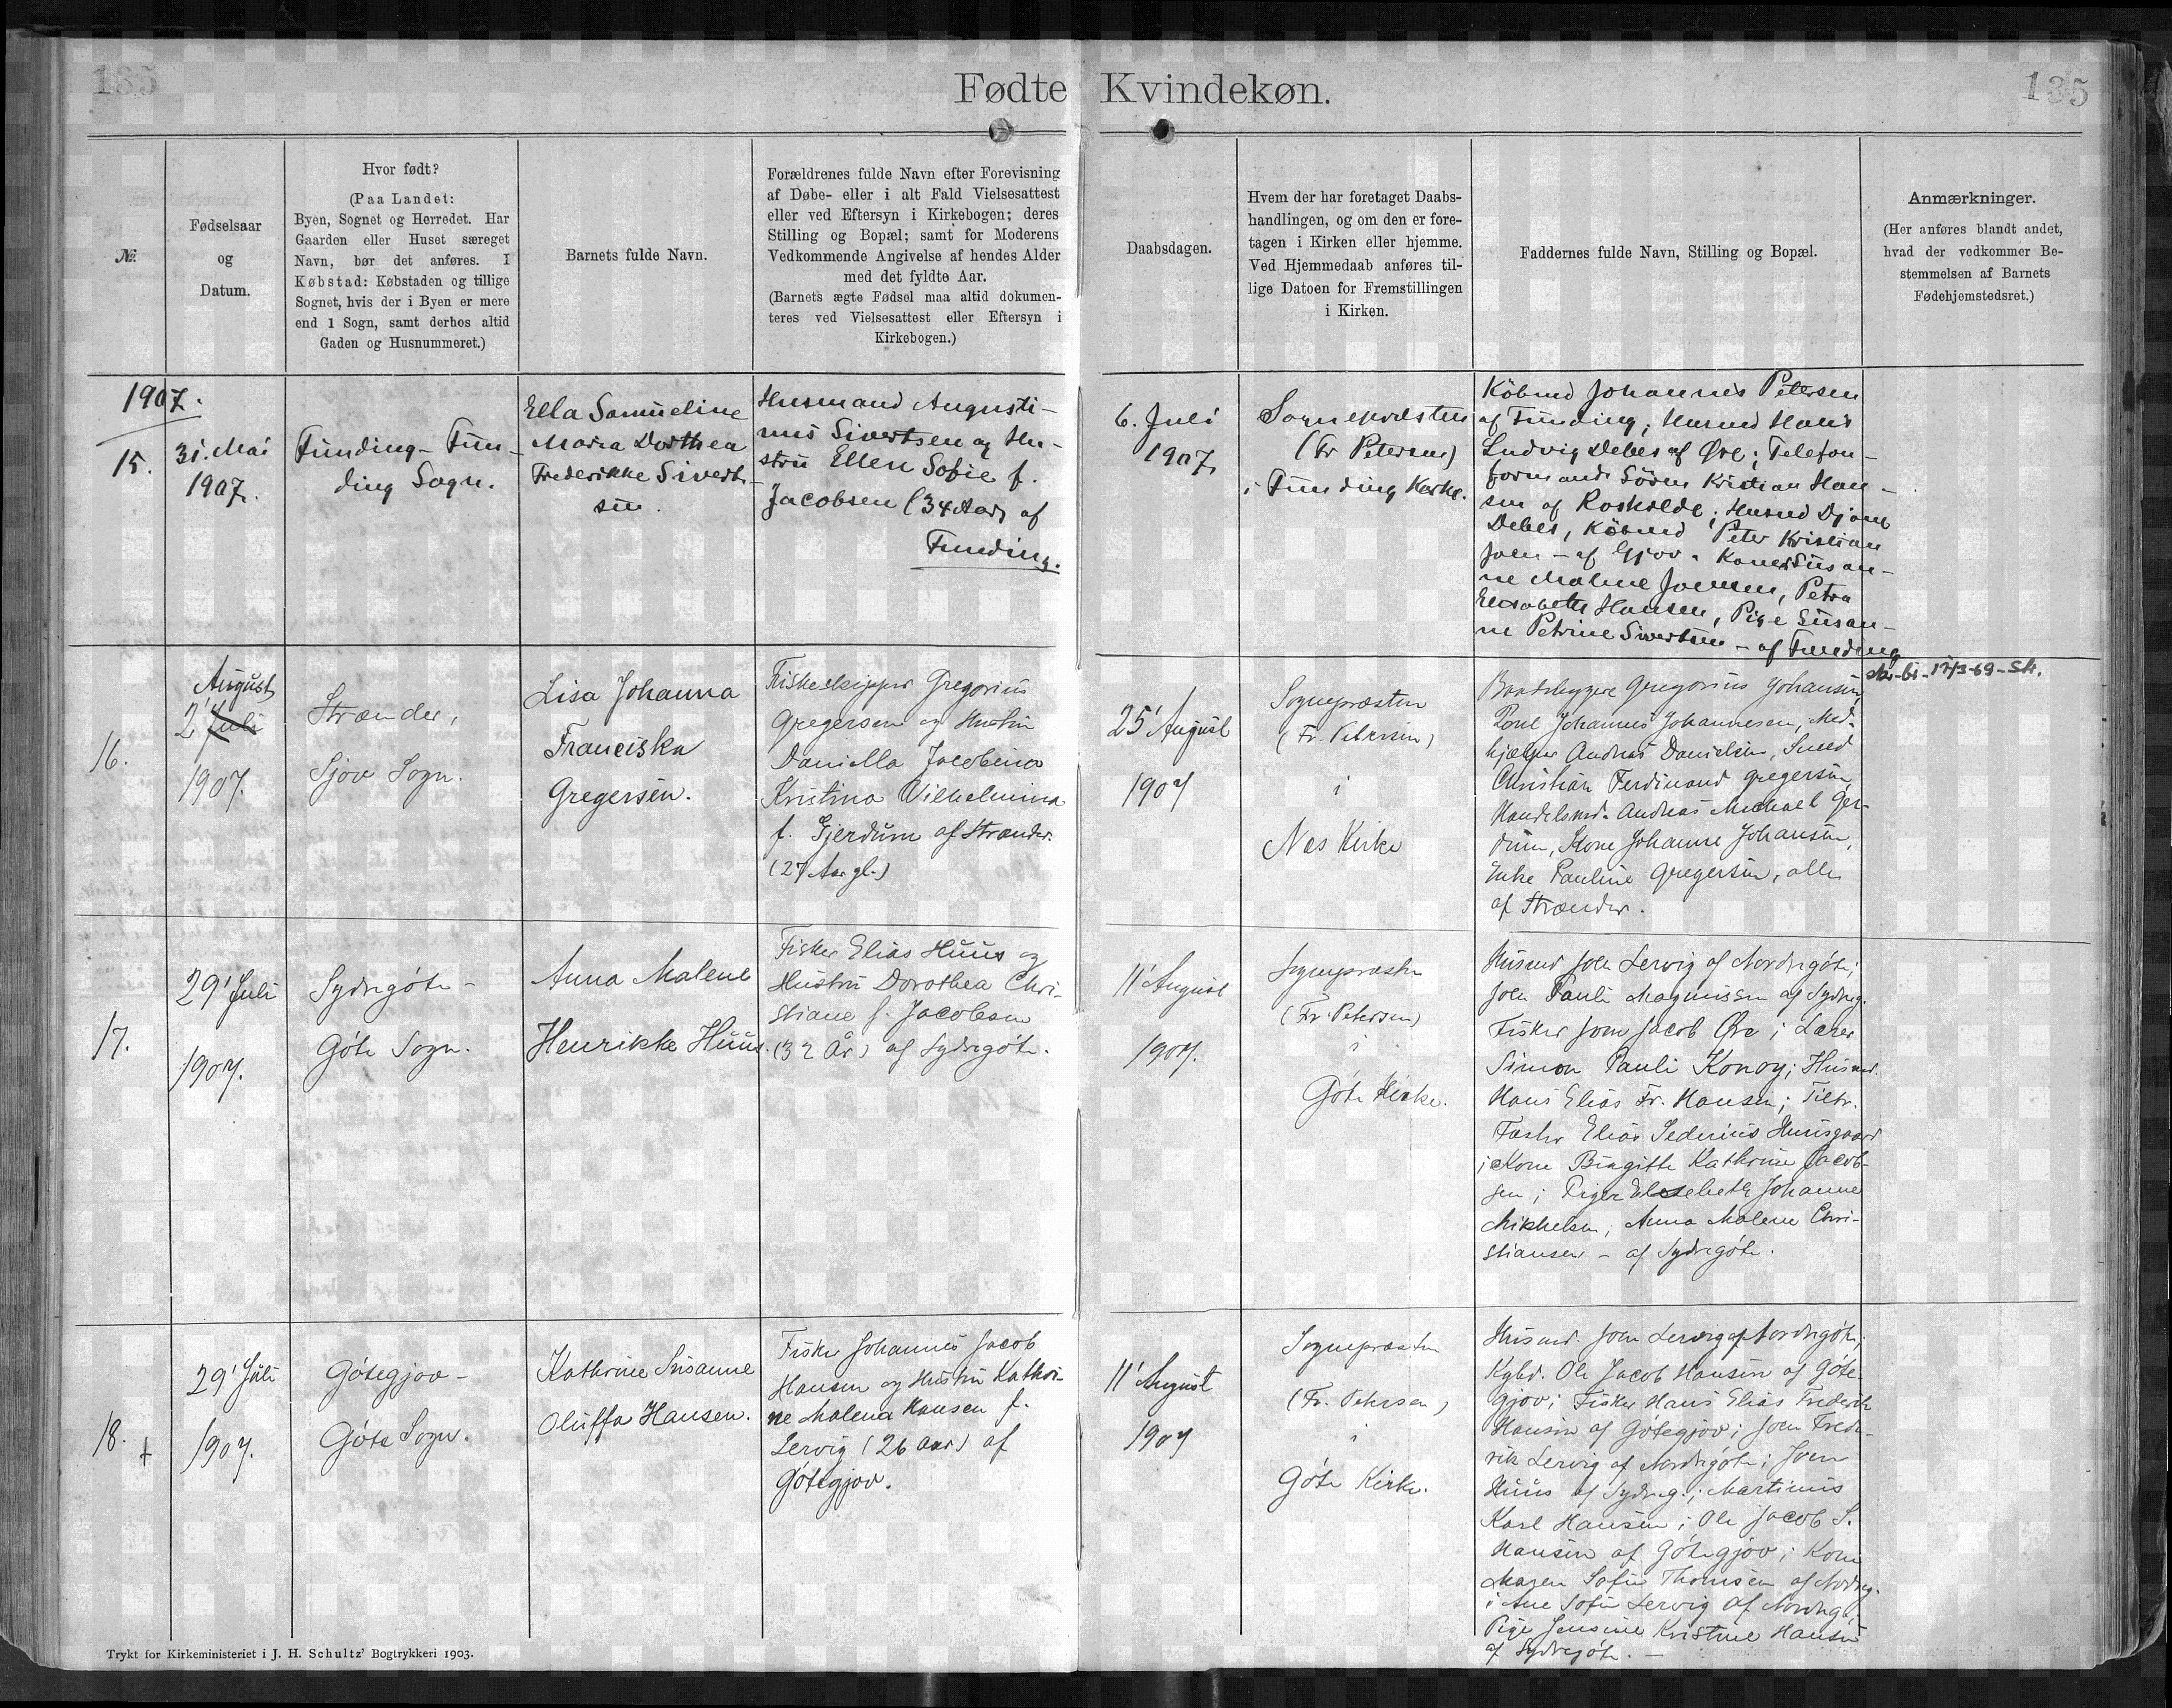 135
Fødte Kvindekøn.
135
№
Fødselsaar
og
Datum.
Hvor født?
(Paa Landet:
Byen, Sognet og Herredet. Har
Gaarden eller Huset særeget
Navn, bør det anføres. I
Købstad: Købstaden og tillige
Sognet, hvis der i Byen er mere
end 1 Sogn, samt derhos altid
Gaden og Husnummeret.)
Barnets fulde Navn.
Forældrenes fulde Navn efter Forevisning
af Døbe- eller i alt Fald Vielsesattest
eller ved Eftersyn i Kirkebogen; deres
Stilling og Bopæl; samt for Moderens
Vedkommende Angivelse af hendes Alder
med det fyldte Aar.
(Barnets ægte Fødsel maa altid dokumen-
teres ved Vielsesattest eller Eftersyn i
Kirkebogen.)
Daabsdagen.
Hvem der har foretaget Daabs-
handlingen, og om den er fore-
tagen i Kirken eller hjemme.
Ved Hjemmedaab anføres til-
lige Datoen for Fremstillingen
i Kirken.
Faddernes fulde Navn, Stilling og Bopæl.
Anmærkninger.
(Her anføres blandt andet,
hvad der vedkommer Be-
stemmelsen af Barnets
Fødehjemstedsret.)
1907.
15.
31. Mai
1907.
Funding - Fun-
ding Sogn.
Ella Samueline
Maria Dorthea
Frederikke Sivert-
sen.
Husmand Augusti-
nus Sivertsen og Hu-
stru Ellen Sofie f.
Jacobsen (34 Aar) af
Funding.
6. Juli
1907.
Sognepræsten
(Fr Petersen)
i Funding Kirke.
Købmd Johannes Petersen
af Funding; Husmd Hans
Ludvig Debes af Øre; Telefon-
formand Sören Kristian Han-
sen af Roskilde; Husmd Djone
Debes, Købmd Peter Kristian
Joen - af Gjov. Koner Susan-
ne Malene Joensen, Petra
Elisabeth Hansen, Pige Susan-
ne Petrine Sivertsen - af Funding
16.
August
2' Juli
1907.
Strænder,
Gjov Sogn.
Lisa Johanna
Franciska
Gregersen.
Fiskeskipper Gregorius
Gregersen og Hustru
Daniella Jacobina
Kristina Vilhelmina
f. Gjerdum af Strænder.
(27 Aar gl.)
25' August
1907
Sognepræsten
(Fr. Petersen)
i
Nes Kirke
Baadebygger Gregorius Johansen,
Poul Johannes Johannesen, Med-
hjælper Andreas Danielsen, Smed
Christian Ferdinand Gregersen,
Handelsmd. Andreas Michael Ger-
dum, Kone Johanne Johansen,
Enke Pauline Gregersen, alle
af Strænder.
17/3-69-
17.
29' Juli
1907.
Sydregöte -
Göte Sogn.
Anna Malene
Henrikke Huus.
Fisker Elias Huus og
Hustru Dorothea Chri-
stiane f. Jacobsen
(32 År) af Sydregöte.
11' August
1907.
Sognepræsten
(Fr. Petersen)
i
Göte Kirke.
Husmd Joen Lervig af Nordregöte;
Joen Pauli Magnussen af Sydreg.
Fisker Joen Jacob Øre; Lærer
Simon Pauli Konoy; Husmd.
Hans Elias Fr. Hansen; Tiltr.
Fæster Elias Sederius Huusgaard
; Kone Birgitte Kathrine Jacob-
sen; Piger Elsebeth Johanne
Mikkelsen; Anna Malene Chri-
stiansen - af Sydregöte.
18. +
29' Juli
1907.
Götegjov -
Göte Sogn.
Kathrine Susanne
Oluffa Hansen.
Fisker Johannes Jacob
Hansen og Hustru Kathri-
ne Malena Hansen f.
Lervig (26 Aar) af
Götegjov.
11' August
1907
Sognepræsten
(Fr. Petersen)
i
Göte Kirke.
Husmd. Joen Lervig af Nordregöte;
Kgbd. Ole Jacob Hansen af Göte-
gjov; Fisker Hans Elias Frederik
Hansen af Götegjov; Joen Frede-
rik Lervig af Nordregöte; Joen
Huus af Sydreg.; Martinus
Karl Hansen; Ole Jacob S.
Hansen af Götegjov; Kone
Maren Sofie Thomsen af Nordreg.
; Ane Sofie Lervig af Nordreg.;
Pige Jensine Kristine Hansen
af Sydregöte. -
Trykt for Kirkeministeriet i J. H. Schultz' Bogtrykkeri 1903.